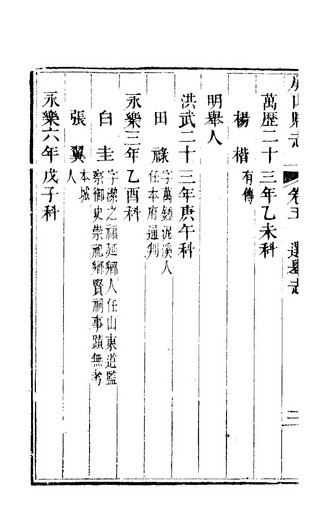 屏山縣志
卷五
選舉志
二
萬歷二十三年乙未科
楊楷 有傳
明舉人
洪武二十三年庚午科
田祿 字萬鍾泥溪人
任本府通判
永樂三年乙酉科
白圭 字潔之福延鄉人任山東道監
察御史崇祀鄉賢祠事蹟無考
張翼 本城
人
永樂六年戊子科